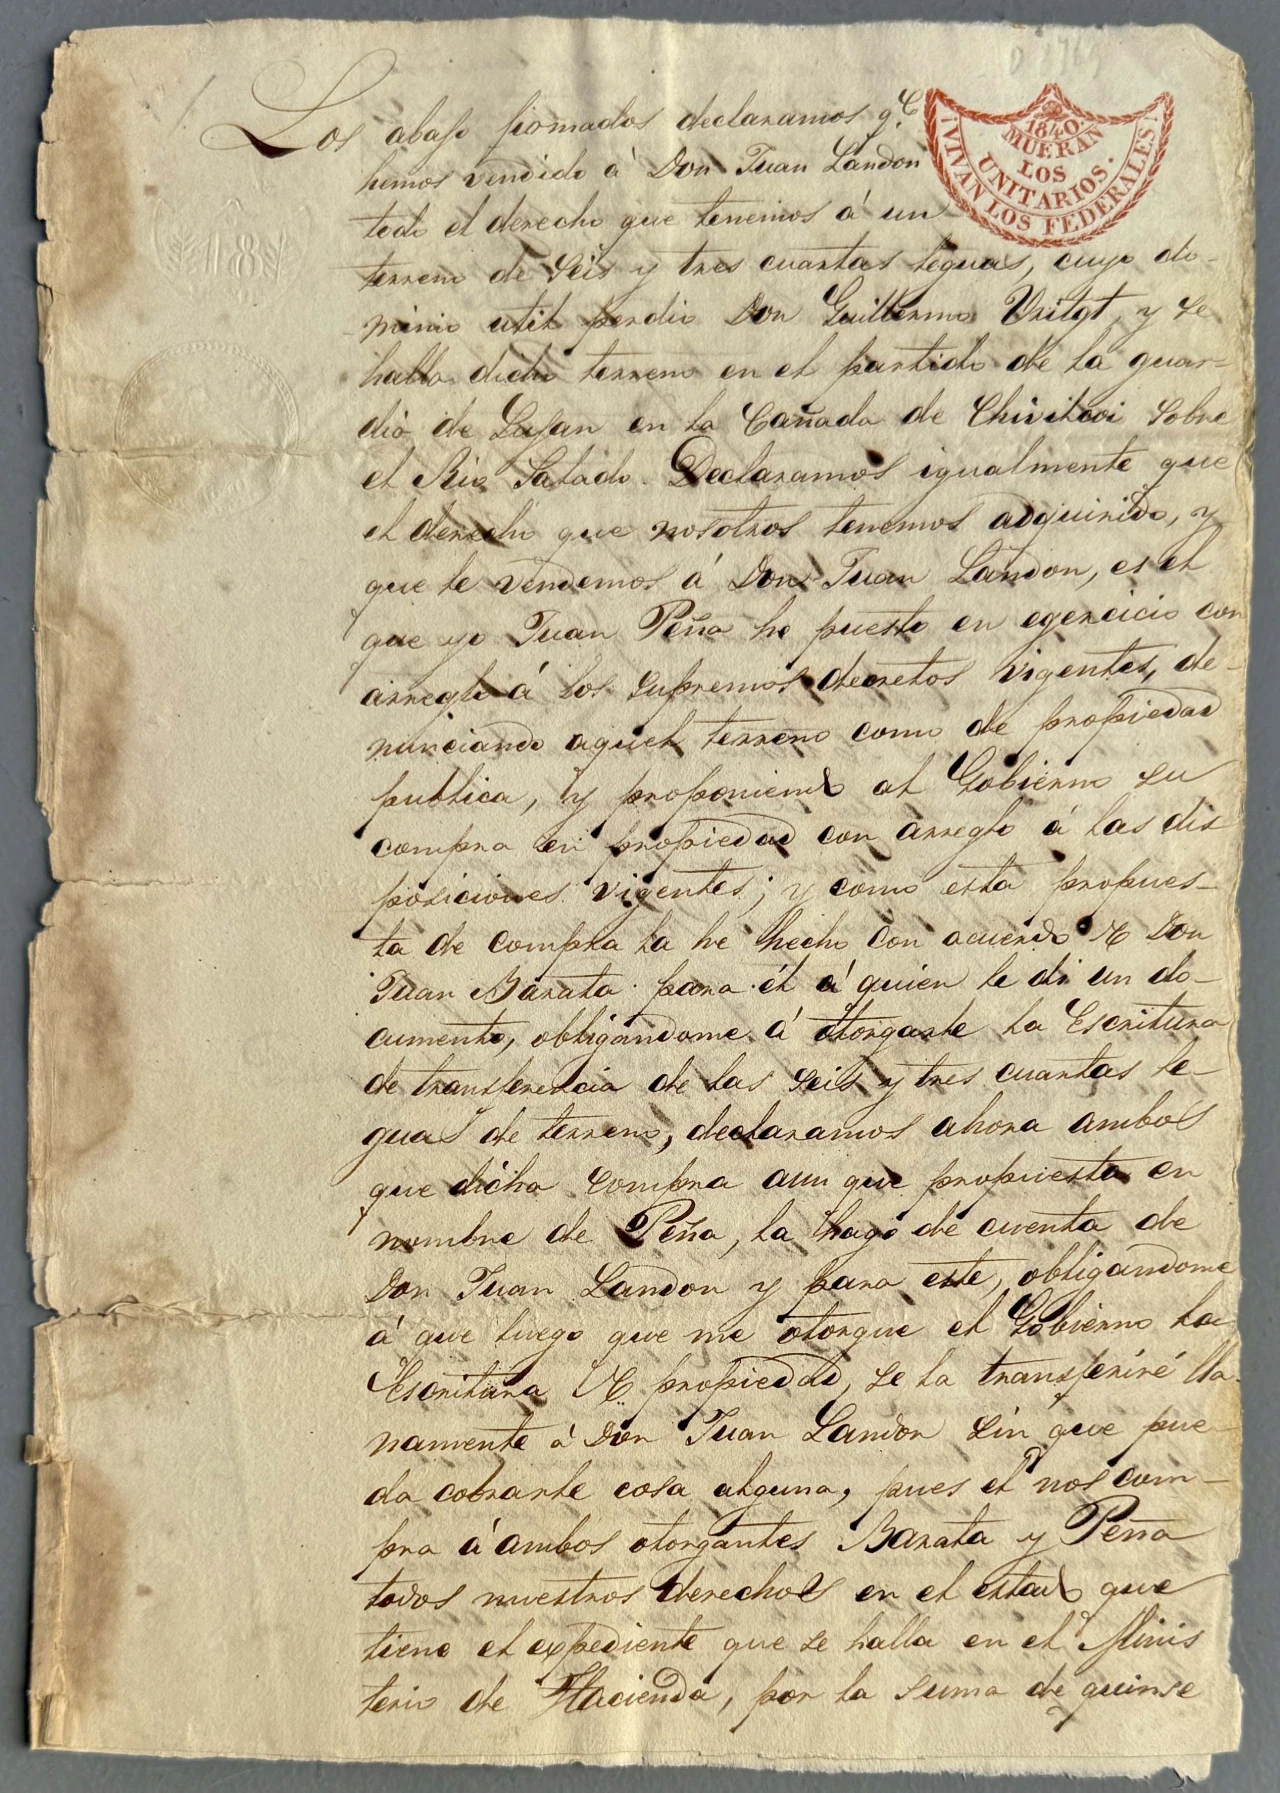 D 2769
¡VIVAN LOS FEDERALES!
1840.
MUERAN
LOS
UNITARIOS.
Los abajo firmados declaramos q.e
hemos vendido á Don Juan Landon
todo el derecho que tenemos á un
terreno de seis y tres cuartas leguas, cuyo do-
minio util perdio Don Guillermo Vritgt, y se
halla dicho terreno en el partido de la guar-
dia de Lujan en la Cañada de Chivilcoi sobre
el Rio Salado. Declaramos igualmente que
el derecho que nosotros tenemos adquirido, y
que le vendemos á Don Juan Landon, es el
que yo Juan Peña he puesto en egercicio con
arreglo á los supremos decretos vigentes, de-
nunciando aquel terreno como de propiedad
publica, y proponiendo al Gobierno su
compra en propiedad con arreglo á las dis
posiciones vigentes; y como esta propues-
ta de compra la he hecho con acuerdo de Don
Juan Barata para él á quien le di un do-
cumento, obligandome á otorgarle la Escritura
de transferencia de las seis y tres cuartas le-
guas de terreno, declaramos ahora ambos
que dicha compra aun que propuesta en
nombre de Peña, la hago de cuenta de
Don Juan Landon y para este, obligandome
á que luego que me otorgue el Gobierno la
Escritura de propiedad, se la transferiré lla-
namente á Don Juan Landon sin que pue
da cobrarle cosa alguna, pues el nos com-
pra á ambos otorgantes Barata y Peña
todos nuestros derechos en el estado que
tiene el expediente que se halla en el Minis
terio de Hacienda, por la suma de quinse